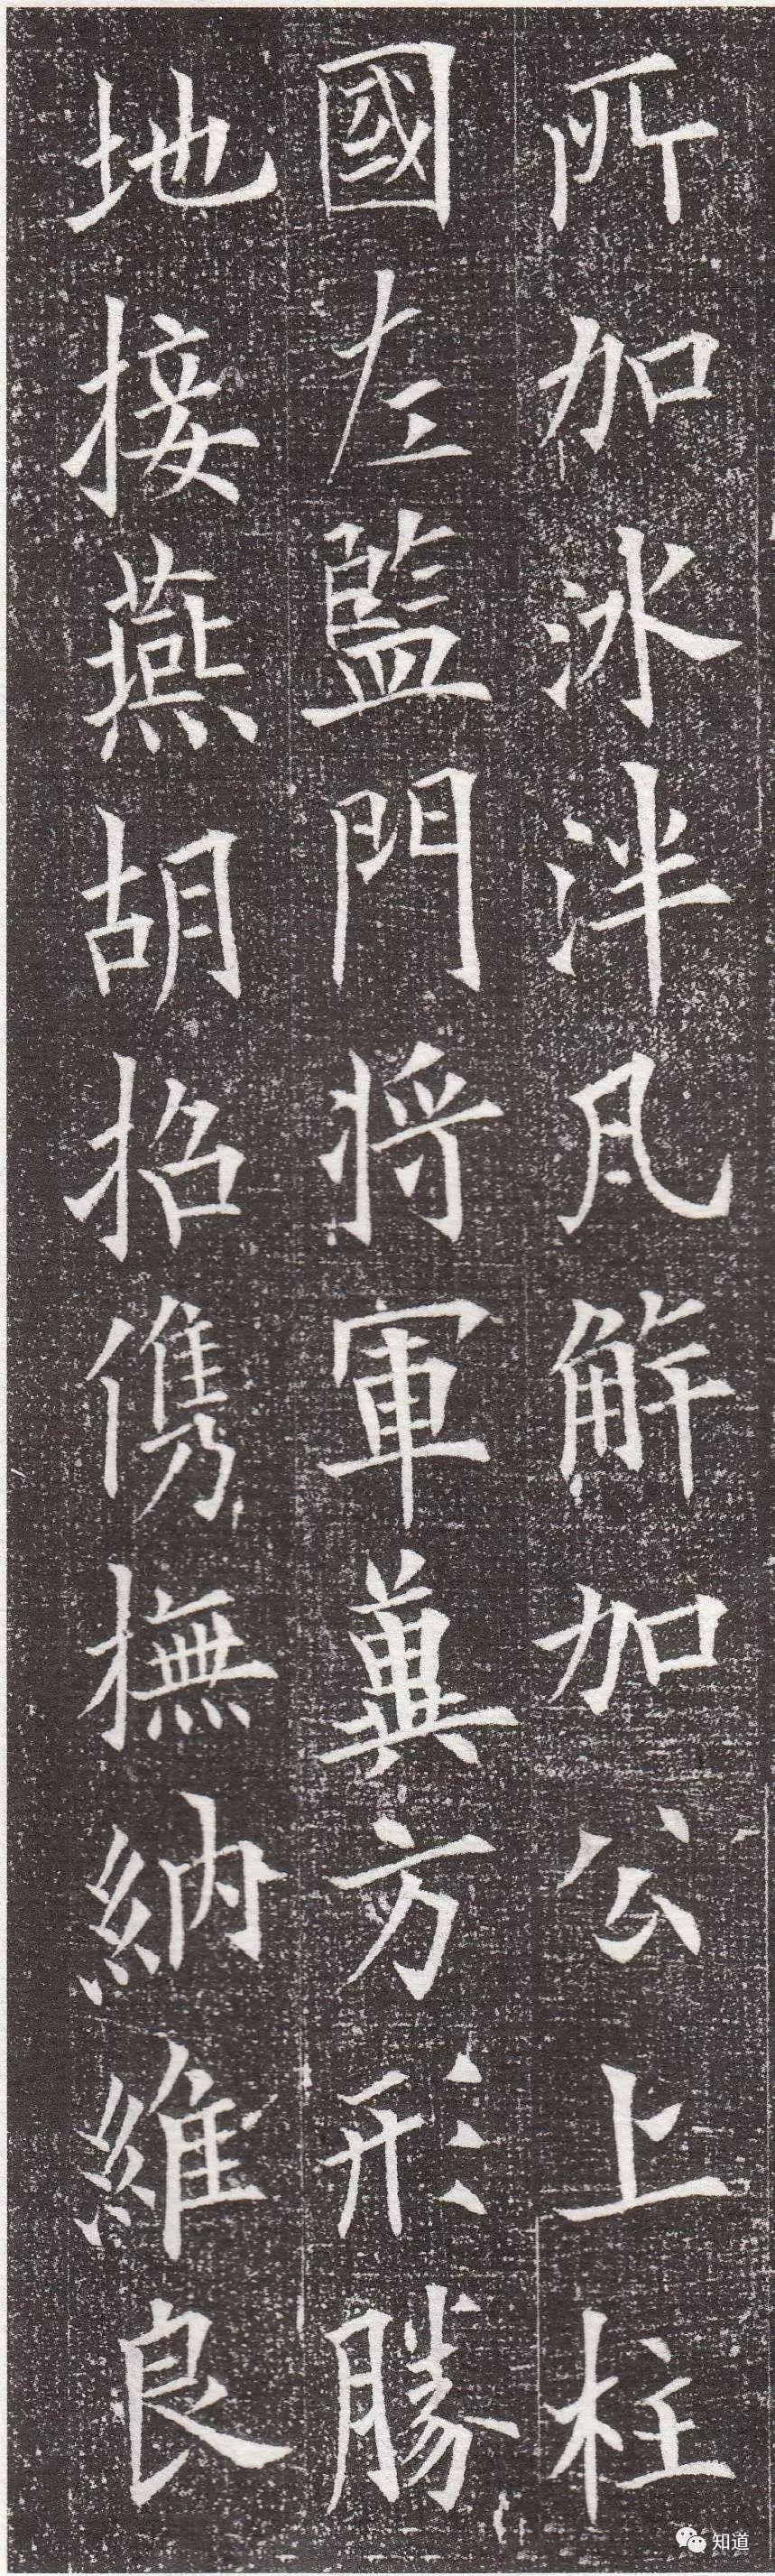 所加冰泮瓦解加公上柱
國左監門將軍冀方形勝
地接燕胡招儁撫納維良
知道